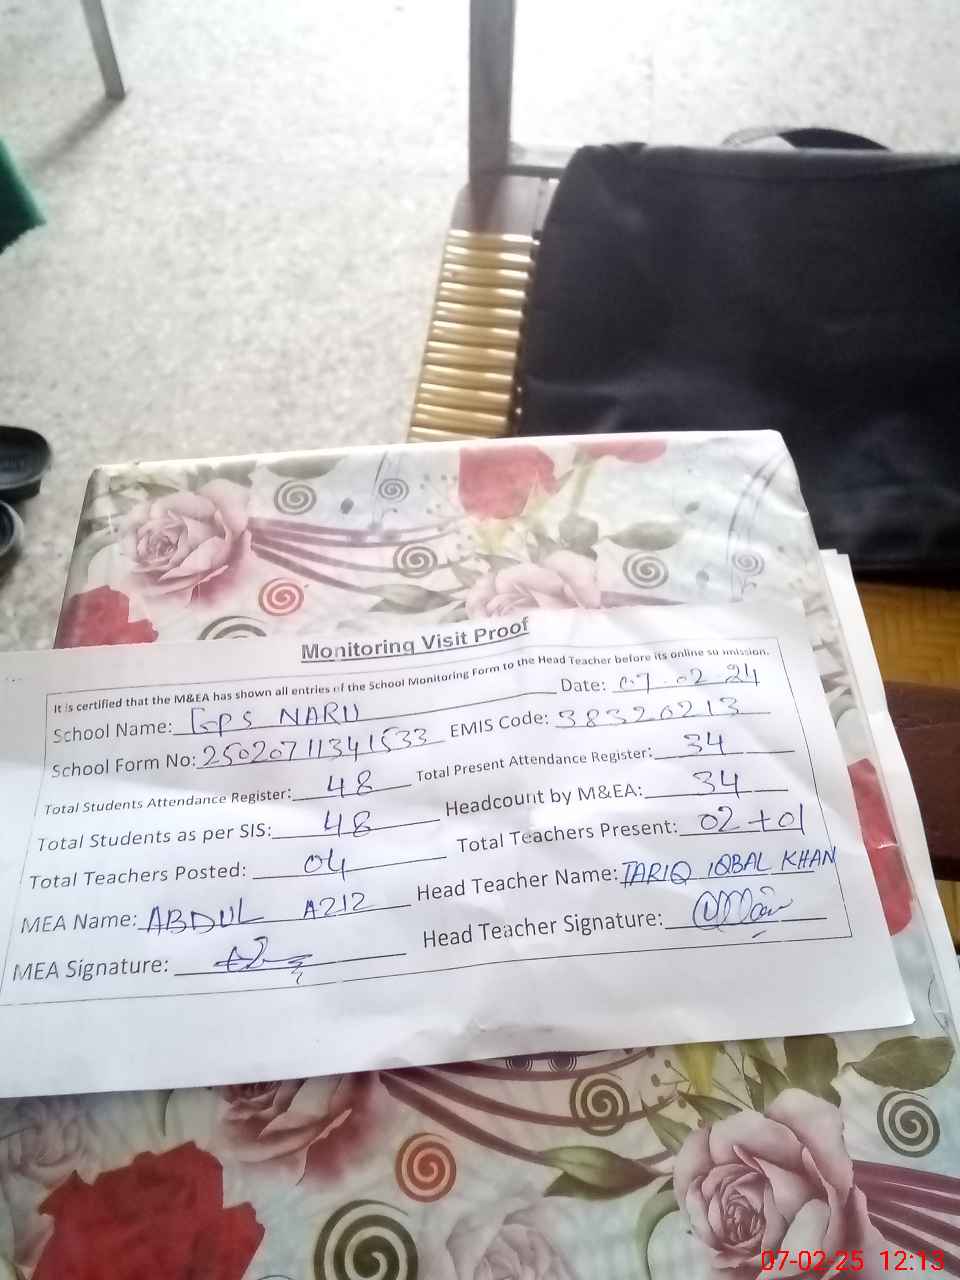 Monitoring Visit Proof
It is certified that the M&EA has shown all entries of the School Monitoring Form to the Head Teacher before its online su mission.
School Name: GPS NARU Date: 07.02.24
School Form No: 25020711341533 EMIS Code: 38320213
Total Students Attendance Register: 48 Total Present Attendance Register: 34
Total Students as per SIS: 48 Headcount by M&EA: 34
Total Teachers Posted: 04 Total Teachers Present: 02+01
MEA Name: ABDUL A212 Head Teacher Name: TARIQ IQBAL KHAN
MEA Signature: Head Teacher Signature:
07-02-25 12:13